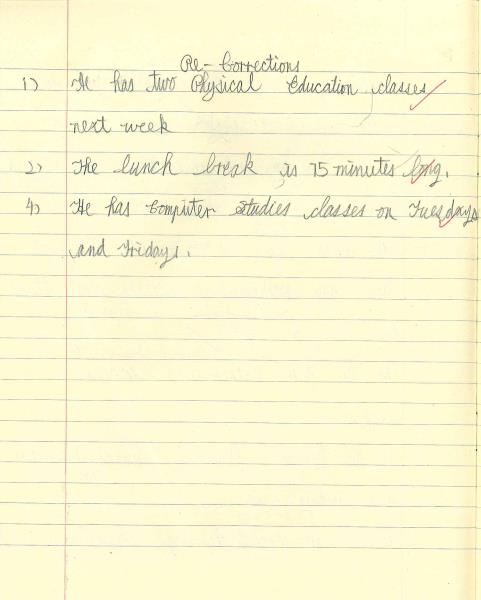 Re-Corrections
1) He has two Physical Education classes
next week
2) The lunch break is 75 minutes long.
4) He has Computer Studies classes on Tuesdays
and Fridays.